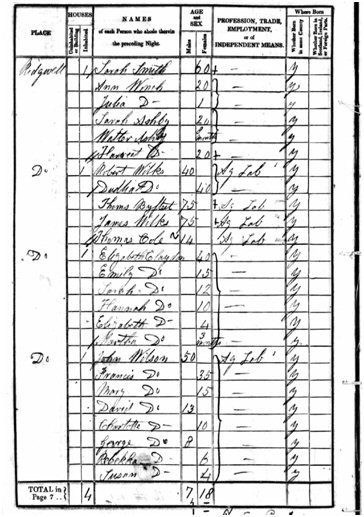 PLACE HOUSES Uninhabited or Building Inhabited NAMES of each Person who abode therein the preceding Night. AGE and SEX Males Females PROFESSION, TRADE, EMPLOYMENT, or of INDEPENDENT MEANS. Where Born Whether Born in same County Whether Born in Scotland, Ireland, or Foreign Parts.
Ridgwell 1 Sarah Smith 60 y
Ann Winch 20 — y
Julia Do 1 — y
Sarah Ashby 20 — y
Walter Ashby — y
Harriet Do 20 — y
Do 1 Robert Wilks 40 Ag Lab y
Do 40 — y
75 Ag Lab y
James Wilks 75 Ag Lab y
Thomas Cole 14 Ag Lab y
Do 1 Elizabeth Claydon 40 — y
Emily Do 15 — y
Sarah Do 12 — y
Hannah Do 10 — y
Elizabeth Do 4 — y
Martha Do 3 months — y
Do 1 John Wilson 50 Ag Lab y
Francis Do 35 — y
Mary Do 15 — y
David Do 13 — y
Charlotte Do 10 — y
George Do 8 — y
Do 6 — y
Susan Do 4 — y
TOTAL in Page 7 4 7 18